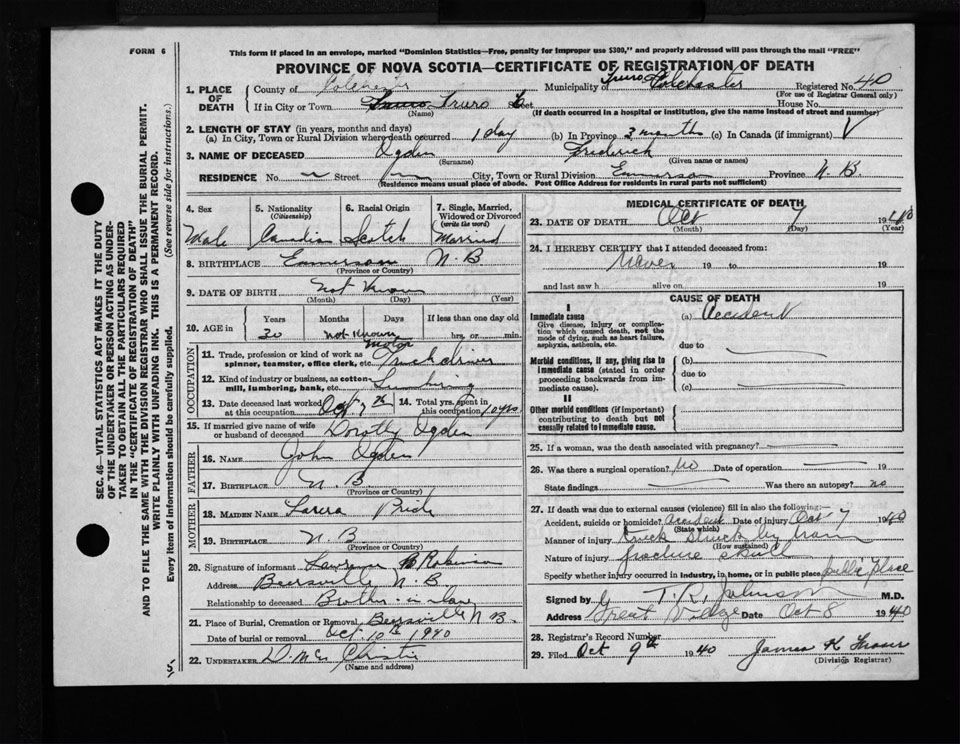 FORM 6
This form if placed in an envelope, marked "Dominion Statistics—Free, penalty for improper use $300," and properly addressed will pass through the mail "FREE"
PROVINCE OF NOVA SCOTIA—CERTIFICATE OF REGISTRATION OF DEATH
1. PLACE OF DEATH
County of Colchester Municipality of Truro Colchester Registered No. 40
(For use of Registrar General only)
If in City or Town Truro Street House No.
(Name) (If death occurred in a hospital or institution, give the name instead of street and number)
2. LENGTH OF STAY (in years, months and days)
(a) In City, Town or Rural Division where death occurred 1 day (b) In Province 3 months (c) In Canada (if immigrant)
3. NAME OF DECEASED Ogden Frederick
(Surname) (Given name or names)
RESIDENCE No. Street City, Town or Rural Division Emmerson Province N.B.
(Residence means usual place of abode. Post Office Address for residents in rural parts not sufficient)
4. Sex 5. Nationality (Citizenship) 6. Racial Origin 7. Single, Married, Widowed or Divorced (write the word)
Male Canadian Scotch Married
8. BIRTHPLACE Emmerson N.B
(Province or Country)
9. DATE OF BIRTH not known
(Month) (Day) (Year)
10. AGE in Years Months Days If less than one day old
30 not known hrs. or min.
OCCUPATION
11. Trade, profession or kind of work as spinner, teamster, office clerk, etc. Motor Truck driver
12. Kind of industry or business, as cotton mill, lumbering, bank, etc. Lumbering
13. Date deceased last worked at this occupation Oct 7th 14. Total yrs. spent in this occupation 10 yrs.
15. If married give name of wife or husband of deceased Dorothy Ogden
FATHER
16. NAME John Ogden
17. BIRTHPLACE N.B
(Province or Country)
MOTHER
18. MAIDEN NAME
19. BIRTHPLACE N.B.
(Province or Country)
20. Signature of informant Lawrence Robinson
Address Beersville N.B.
Relationship to deceased Brother-in-law
21. Place of Burial, Cremation or Removal Beersville N.B.
Date of burial or removal Oct 10th 1940
22. UNDERTAKER D. Mc Christie
(Name and address)
MEDICAL CERTIFICATE OF DEATH
23. DATE OF DEATH Oct 7 1940
(Month) (Day) (Year)
24. I HEREBY CERTIFY that I attended deceased from:
Never 19 to 19
and last saw h alive on 19
CAUSE OF DEATH
I
Immediate cause (a) Accident
Give disease, injury or complication which caused death, not the mode of dying, such as heart failure, asphyxia, asthenia, etc.
due to
Morbid conditions, if any, giving rise to immediate cause (stated in order proceeding backwards from immediate cause).
(b)
due to
(c)
II
Other morbid conditions (if important) contributing to death but not causally related to immediate cause.
25. If a woman, was the death associated with pregnancy?
26. Was there a surgical operation? No Date of operation 19
State findings Was there an autopsy? no
27. If death was due to external causes (violence) fill in also the following:—
Accident, suicide or homicide? Accident Date of injury Oct 7 1940
(State which)
Manner of injury truck struck by train
(How sustained)
Nature of injury fracture skull
Specify whether injury occurred in industry, in home, or in public place public place
Signed by T. R. Johnson M.D.
Address Great Village Date Oct 8 1940
28. Registrar's Record Number
29. Filed Oct 9th 1940 James K Fraser
(Division Registrar)
SEC. 46—VITAL STATISTICS ACT MAKES IT THE DUTY
OF THE UNDERTAKER OR PERSON ACTING AS UNDER-
TAKER TO OBTAIN ALL THE PARTICULARS REQUIRED
IN THE "CERTIFICATE OF REGISTRATION OF DEATH"
AND TO FILE THE SAME WITH THE DIVISION REGISTRAR WHO SHALL ISSUE THE BURIAL PERMIT.
WRITE PLAINLY WITH UNFADING INK. THIS IS A PERMANENT RECORD.
Every item of information should be carefully supplied. (See reverse side for instructions.)